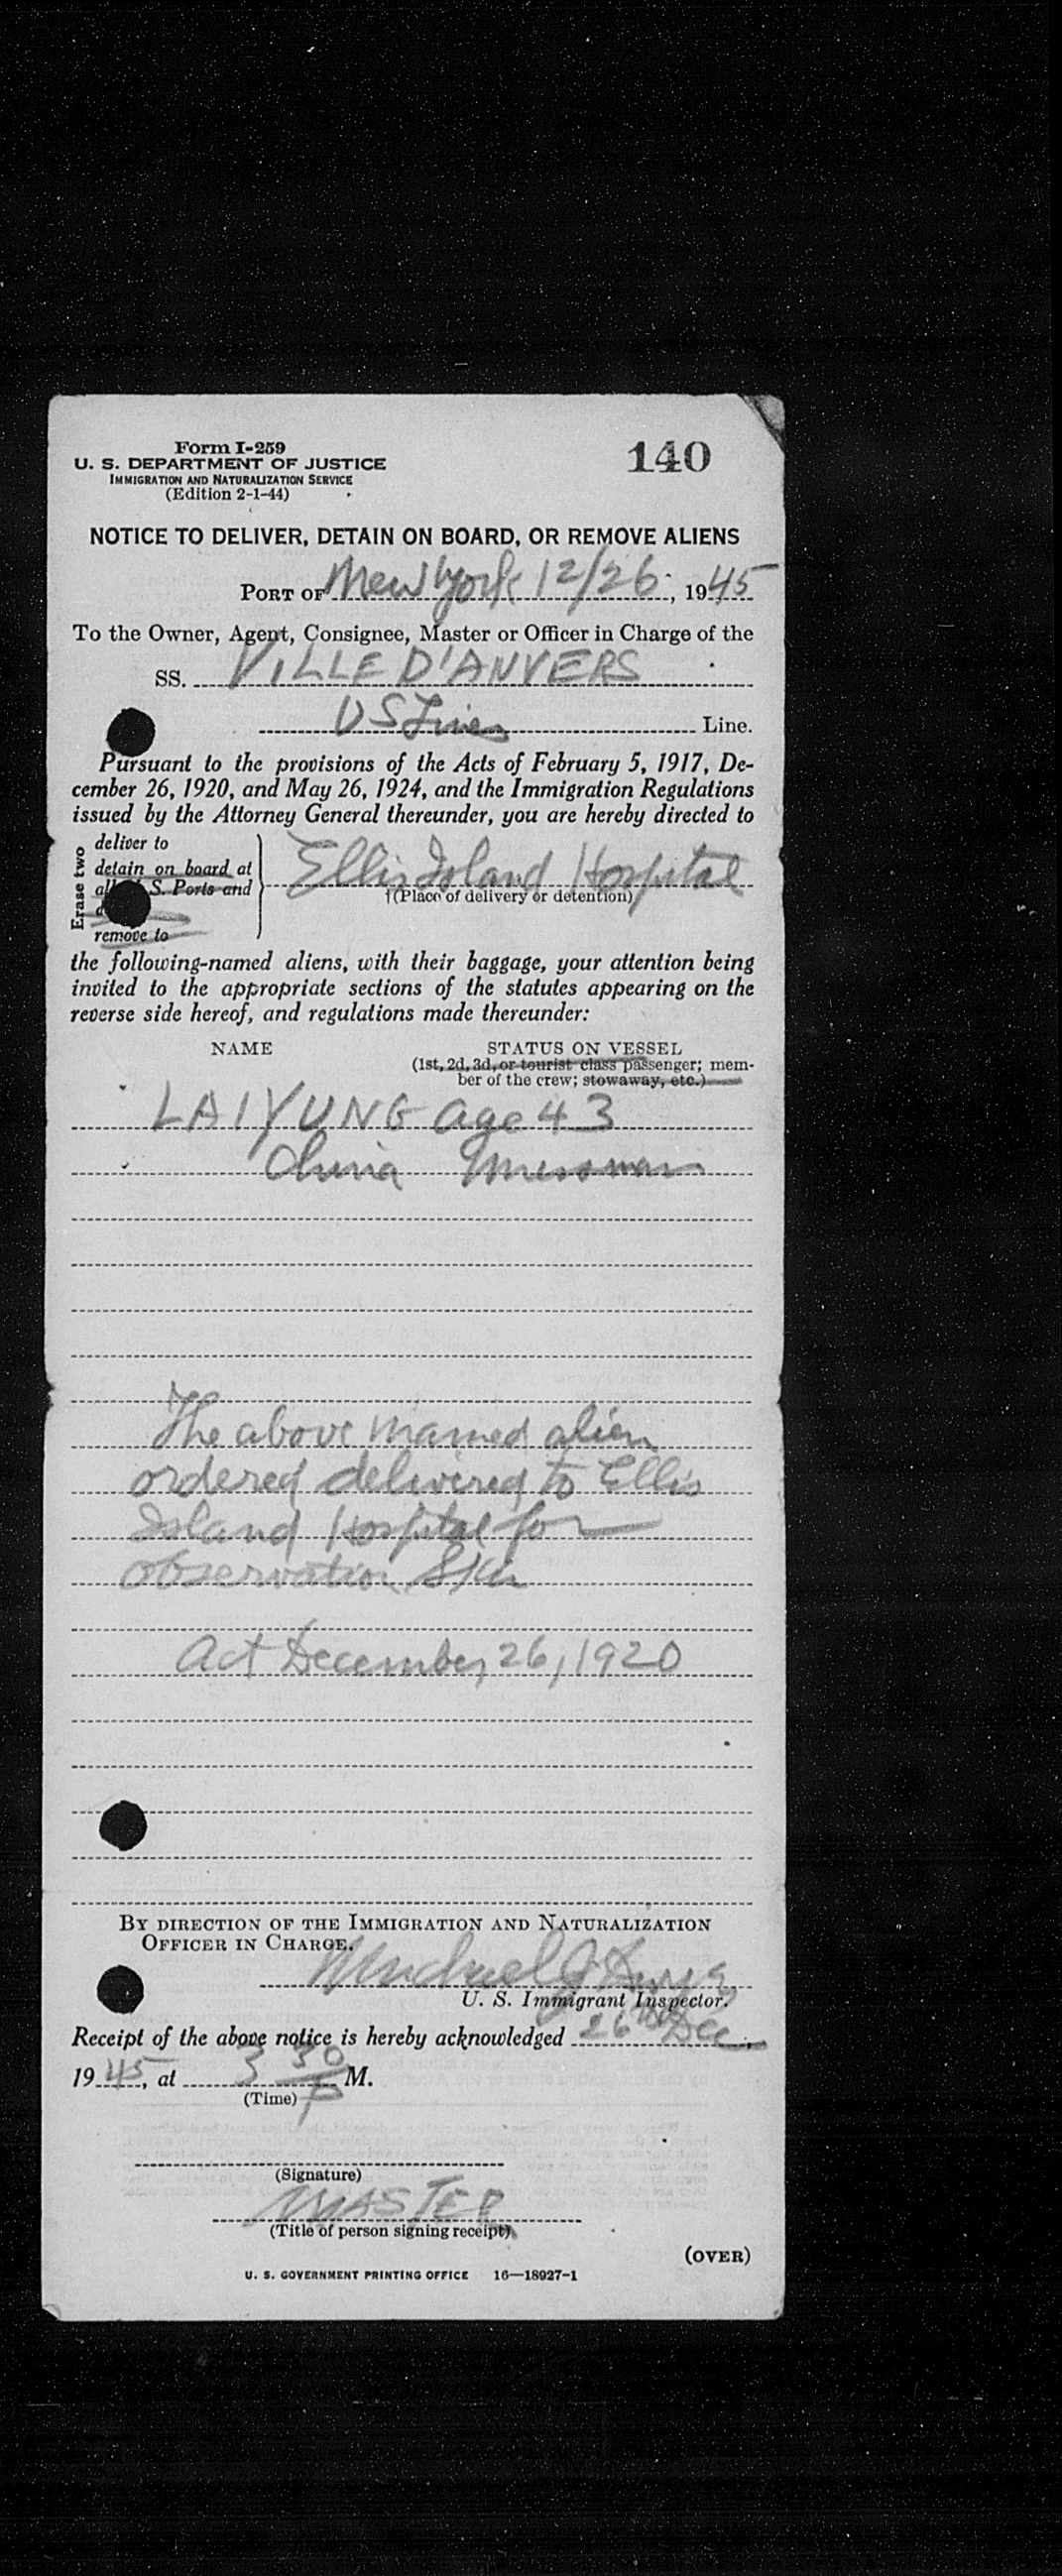 Form I-259
140
U. S. DEPARTMENT OF JUSTICE
IMMIGRATION AND NATURALIZATION SERVICE
(Edition 2-1-44)
NOTICE TO DELIVER, DETAIN ON BOARD, OR REMOVE ALIENS
PORT OF New York 12/26, 1945
To the Owner, Agent, Consignee, Master or Officer in Charge of the
SS. VILLE D'ANVERS
US Lines Line.
Pursuant to the provisions of the Acts of February 5, 1917, De-
cember 26, 1920, and May 26, 1924, and the Immigration Regulations
issued by the Attorney General thereunder, you are hereby directed to
Erase two
deliver to
detain on board at
S. Ports and
remove to
Ellis Island Hospital
†(Place of delivery or detention)
the following-named aliens, with their baggage, your attention being
invited to the appropriate sections of the statutes appearing on the
reverse side hereof, and regulations made thereunder:
NAME STATUS ON VESSEL
(1st, 2d, 3d, or tourist class passenger; mem-
ber of the crew; stowaway, etc.)
LAI YUNG age 43
China Messman
The above named alien
ordered delivered to Ellis
Island Hospital for
observation Skin
Act December 26, 1920
BY DIRECTION OF THE IMMIGRATION AND NATURALIZATION
OFFICER IN CHARGE.
Michael J
U. S. Immigrant Inspector.
Receipt of the above notice is hereby acknowledged 26th Dec,
1945, at 3 30 P M.
(Time)
(Signature)
MASTER
(Title of person signing receipt)
(OVER)
U. S. GOVERNMENT PRINTING OFFICE 16—18927-1